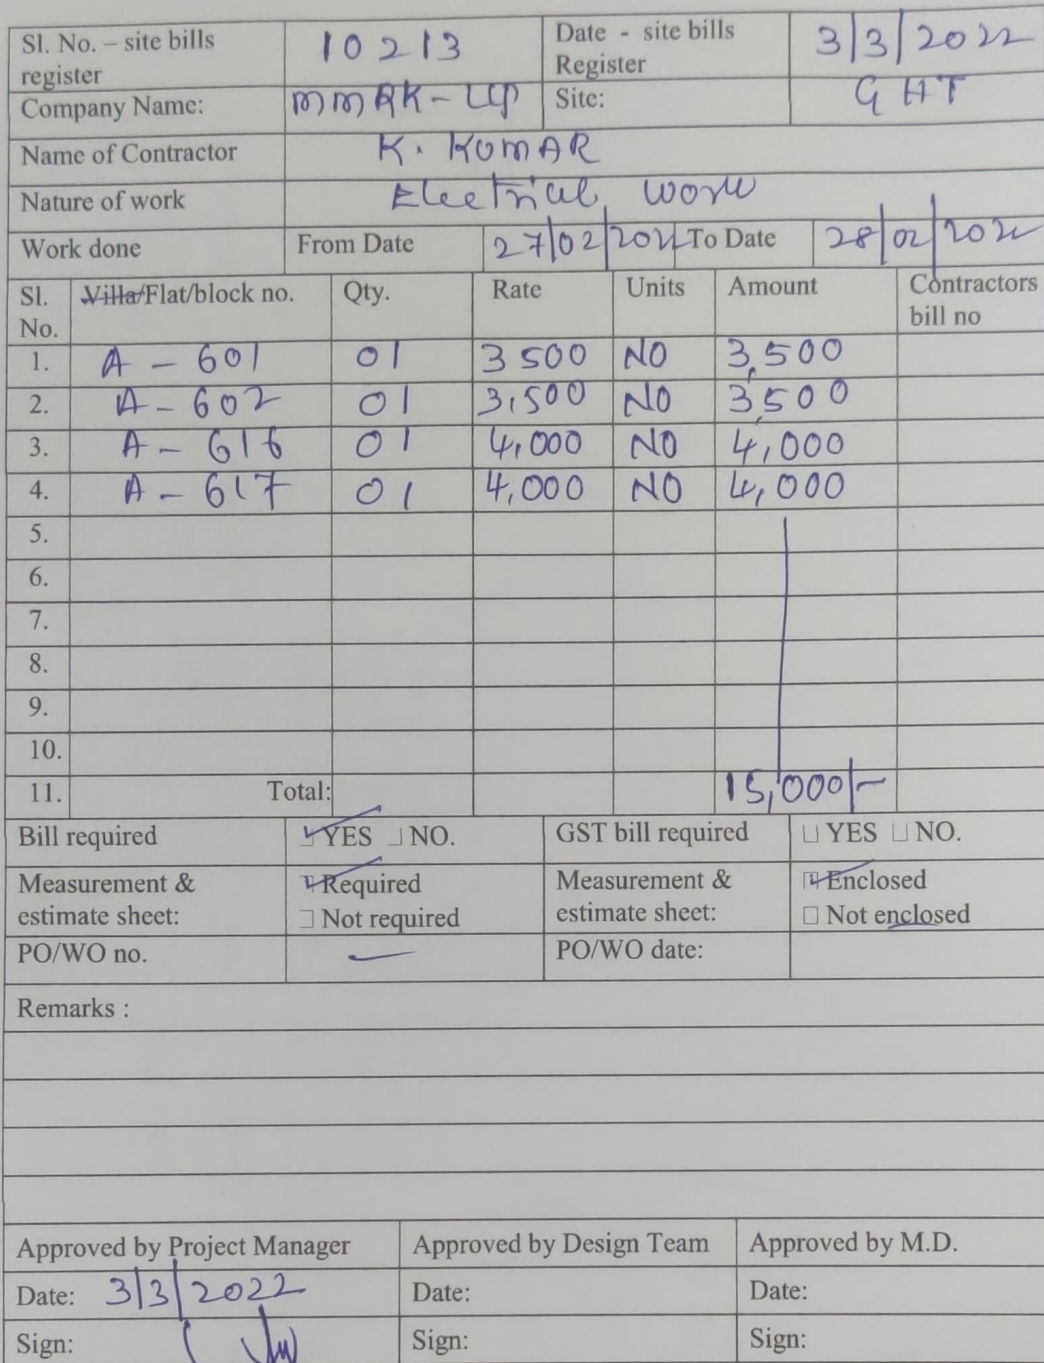 Sl. No. – site bills register 10213 Date - site bills Register 3/3/2022
Company Name: MMRK-LLP Site: GHT
Name of Contractor K. KUMAR
Nature of work Electrical work
Work done From Date 27/02/2022 To Date 28/02/2022
Sl. No. Villa/Flat/block no. Qty. Rate Units Amount Contractors bill no
1. A - 601 01 3500 NO 3,500
2. A - 602 01 3,500 NO 3,500
3. A - 616 01 4,000 NO 4,000
4. A - 617 01 4,000 NO 4,000
5.
6.
7.
8.
9.
10.
11. Total: 15,000/-
Bill required YES NO. GST bill required YES NO.
Measurement & estimate sheet: Required Not required Measurement & estimate sheet: Enclosed Not enclosed
PO/WO no. — PO/WO date:
Remarks :
Approved by Project Manager Approved by Design Team Approved by M.D.
Date: 3/3/2022 Date: Date:
Sign: Sign: Sign: